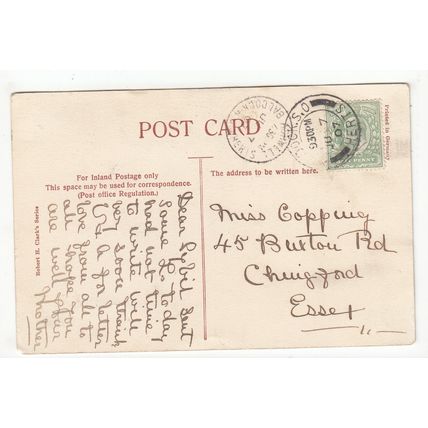 POST CARD
For Inland Postage only
This space may be used for correspondence.
(Post office Regulation.)
The address to be written here.
Printed in Germany
Robert H. Clark's Series
Dear Sybil Sent
some to day
had not time
to write will
very soon thank
for letter
love from all to
all hope you
are well your
Mother
Miss Copping
45 Buxton Rd
Chingford
Essex